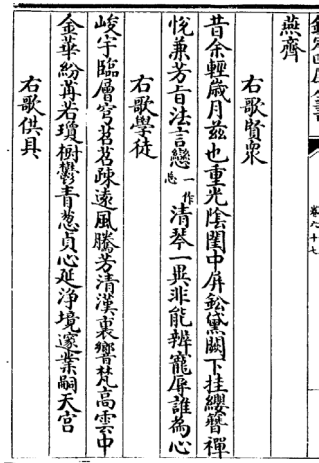 欽定四庫全書
卷八十七
燕齊
右歌賢衆
昔余輕歲月茲也重光陰閨中屏鉛黛闕下挂纓簪禪
悅兼芳旨法言戀一作清琴一異非能辨寵辱誰為心
右歌學徒
峻宇臨層穹苕苕疎遠風騰芳清漢裏響梵高雲中
金華紛苒若瓊樹鬱青葱貞心延淨境邃業嗣天宫
右歌供具